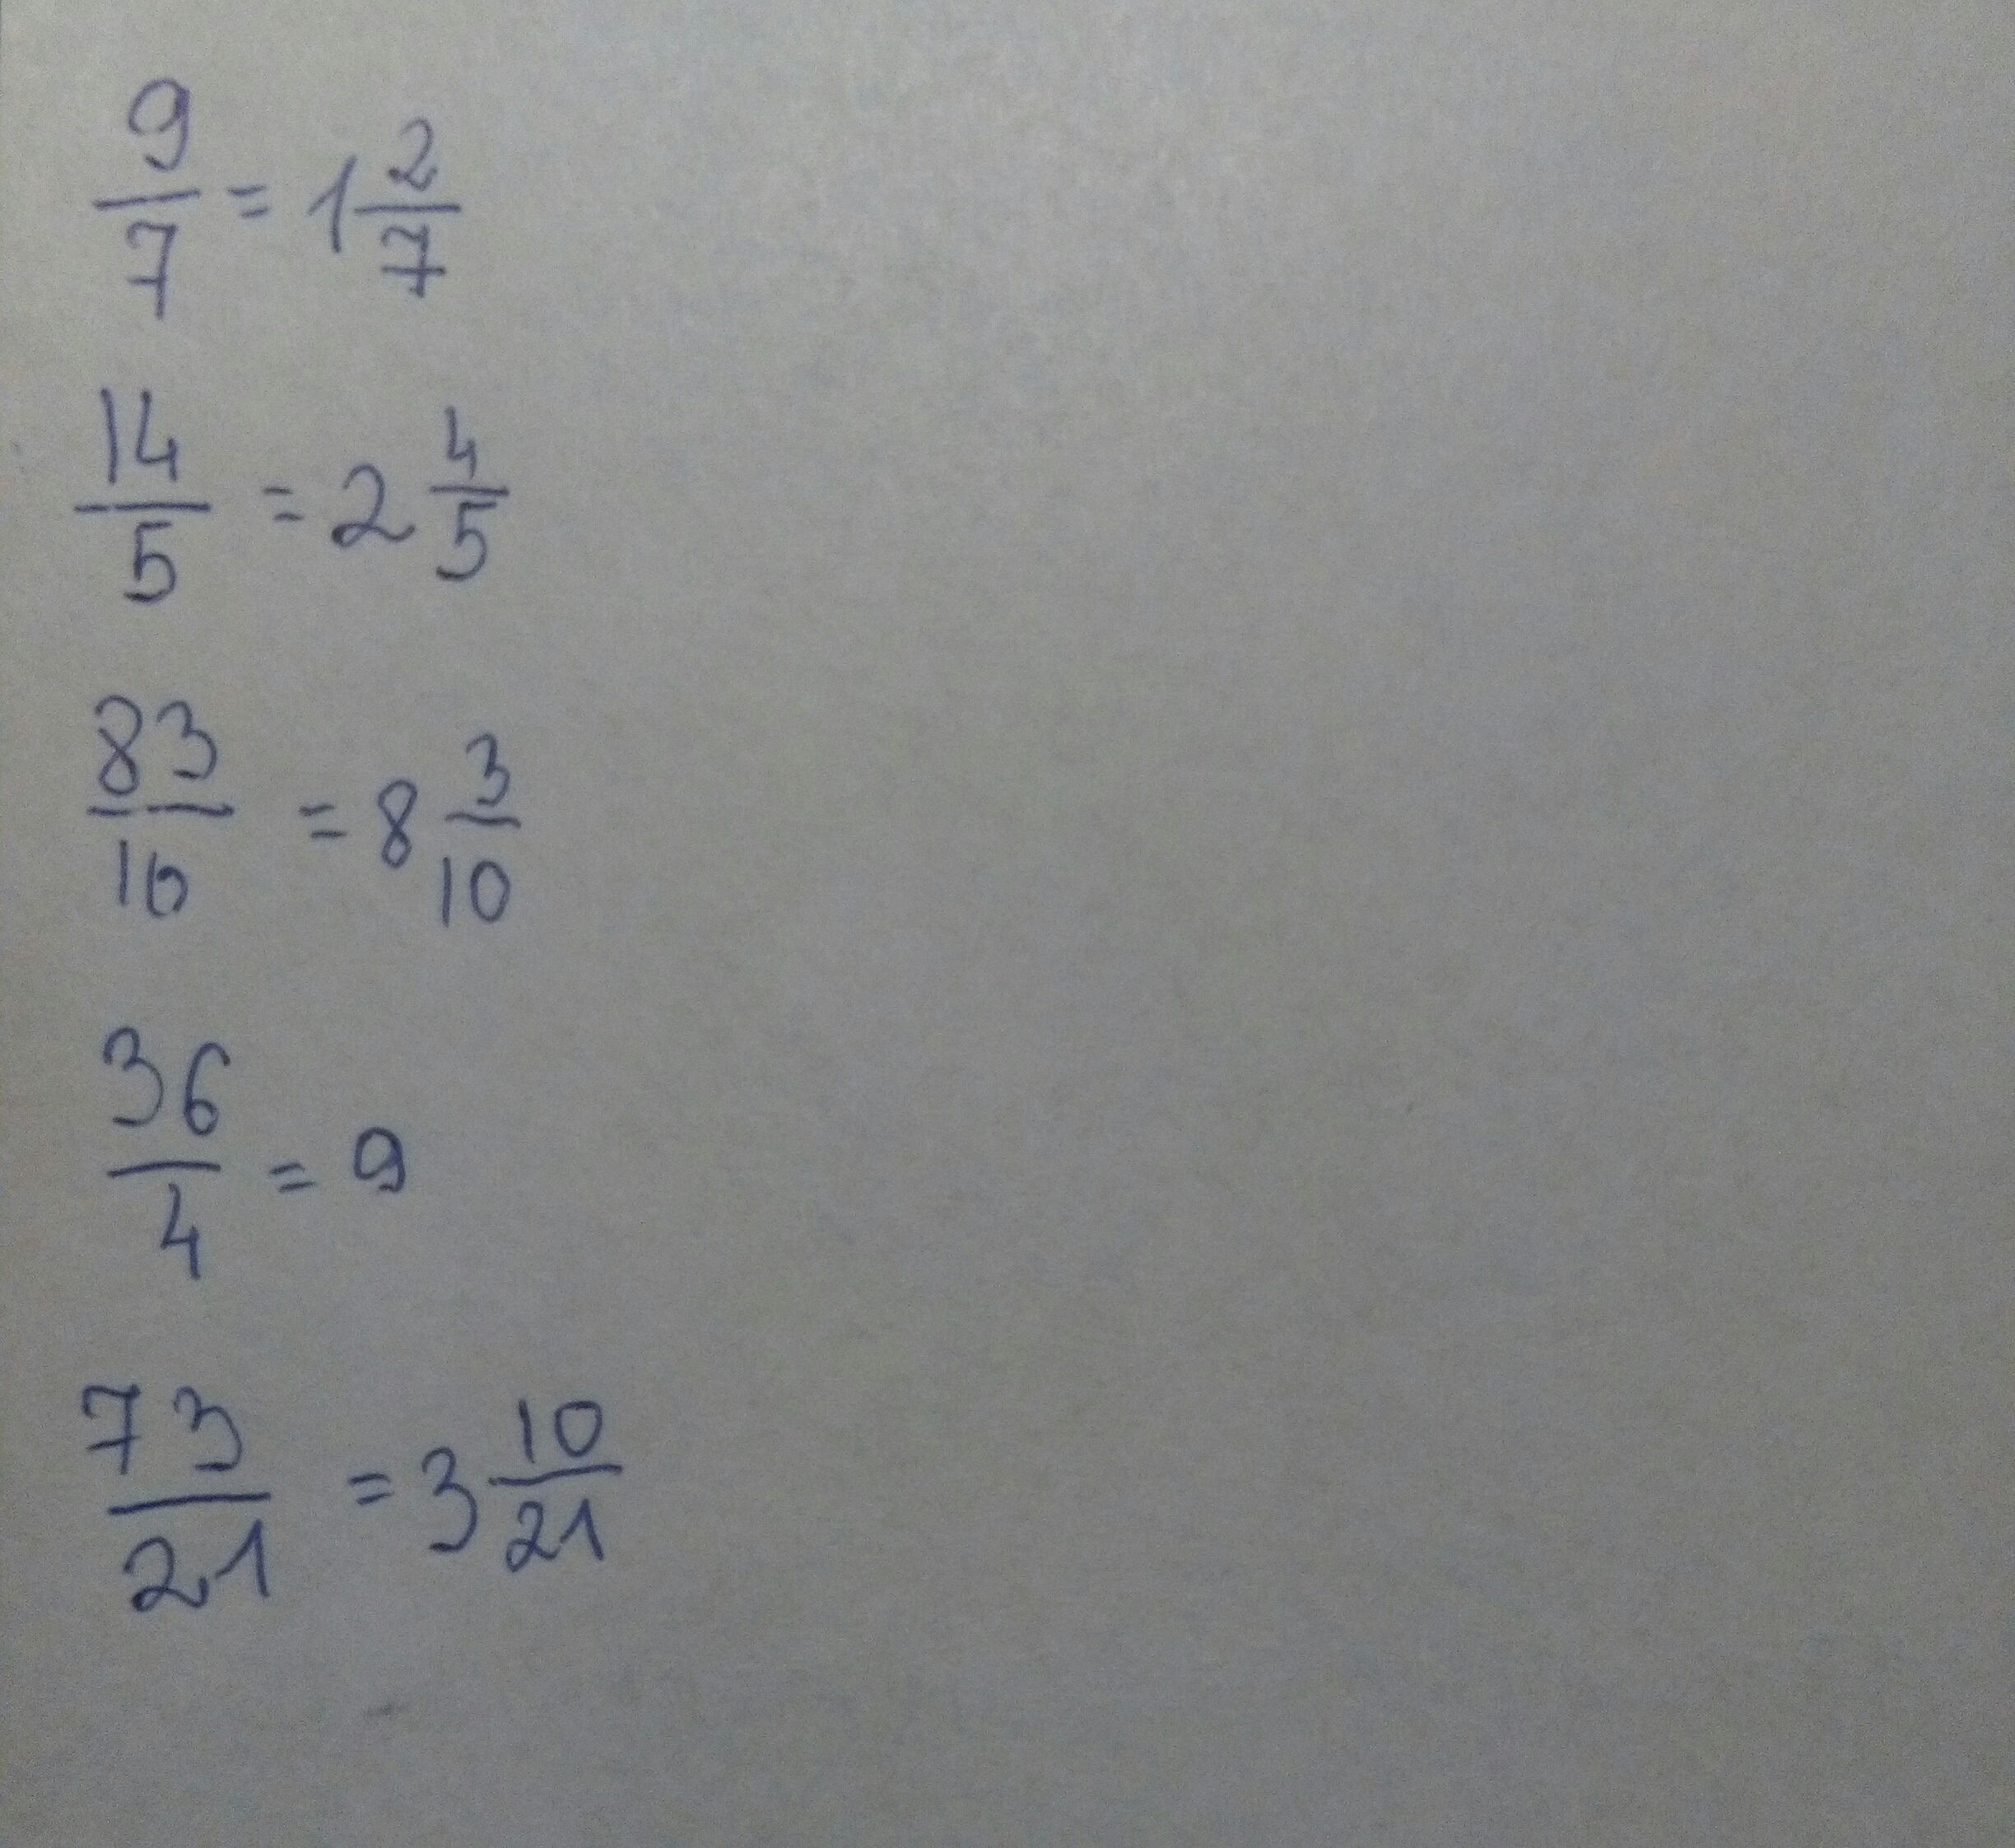 9/7 = 1 2/7
14/5 = 2 4/5
83/10 = 8 3/10
36/4 = 9
73/21 = 3 10/21